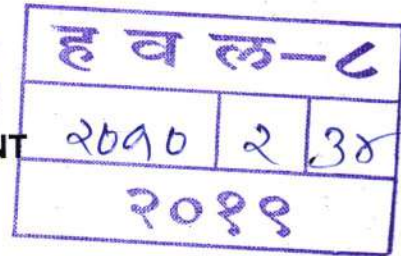 ह व ल-८
NT २०१० २ ३४
२०१९